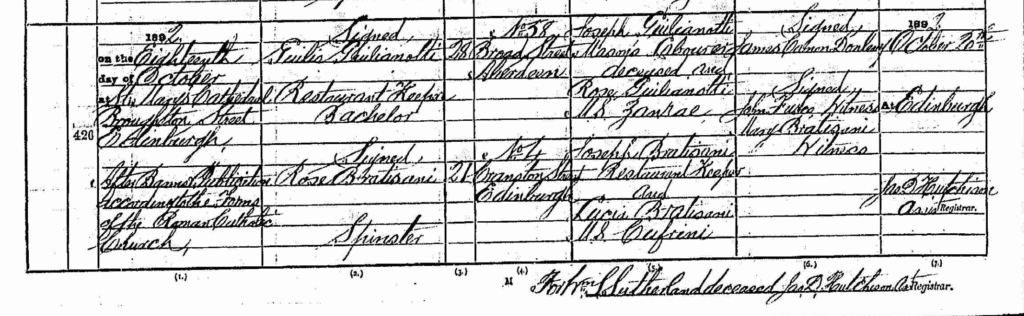 1892,
on the Eighteenth
day of October
at St. Mary's Cathedral
Broughton Street
Edinburgh,
After Banns & Publication
according to the Forms
of the Roman Catholic
Church,
426
Signed,
Giulio Giulianotti
Restaurant Keeper
Bachelor
Signed,
Rose Bratisani
Spinster
28
21
No 58,
Broad Street
Aberdeen
No 4,
Cranston Street
Edinburgh
Joseph Giulianotti
Mason's Labourer
deceased and
Rose Giulianotti
M.S. Zanrae
Joseph Bratisani
Restaurant Keeper
and
Lucia Bratisani
M.S. Cufreni
Signed,
James Canon Donlevy
Signed
John Fusco, Witness
Mary Bratisani
Witness
1892,
October 20th
At Edinburgh
Jas D. Hutchison
Assist Registrar.
(1.) (2.) (3.) (4.) (5.) (6.) (7.)
M
For Wm S. Sutherland deceased, Jas D. Hutchison Ast Registrar.